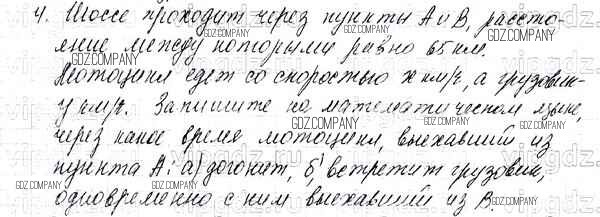 4. Шоссе проходит через пункты А и В, рассто-
яние между которыми равно 65 км.
Мотоцикл едет со скоростью x км/ч, а грузовик-
y км/ч. Запишите на математическом языке,
через какое время мотоцикл, выехавший из
пункта А: а) догонит, б) встретит грузовик,
одновременно с ним выехавший из В.